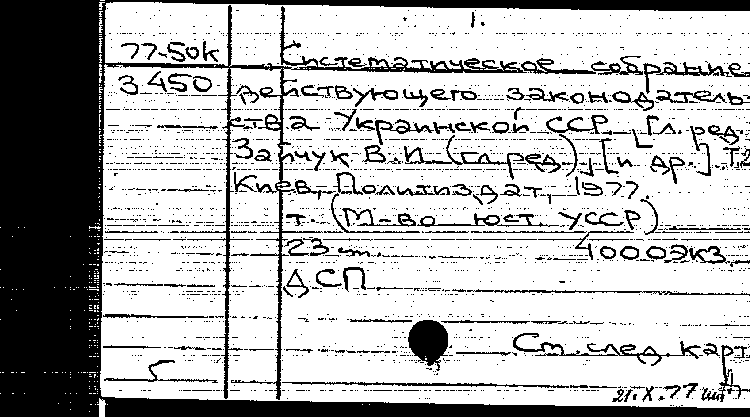 1.
77-50к
Систематическое собрание
3450 действующего законодатель-
ства Украинской ССР. [Гл. ред.
Зайчук В.И. (гл. ред.), [и др.]. Т2
Киев, Политиздат, 1977.
т. (М-во юст. УССР)
23 4000экз.
ДСП
См. след. карт
5
21.X.77